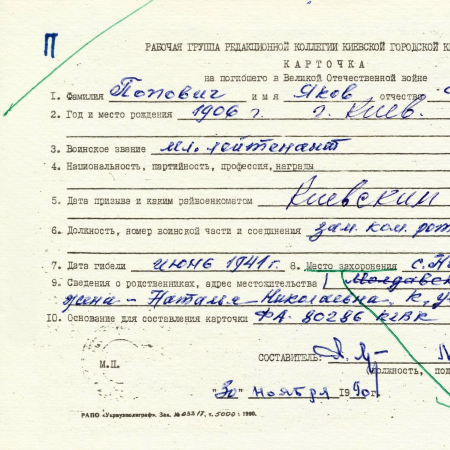 П
РАБОЧАЯ ГРУППА РЕДАКЦИОННОЙ КОЛЛЕГИИ КИЕВСКОЙ ГОРОДСКОЙ
КАРТОЧКА
на погибшего в Великой Отечественной войне
1. Фамилия Попович имя Яков отчество
2. Год и место рождения 1906 г. г. Киев.
3. Воинское звание мл. лейтенант
4. Национальность, партийность, профессия, награды
5. Дата призыва и каким райвоенкоматом Киевский
6. Должность, номер воинской части и соединения зам. ком. рот
7. Дата гибели июнь 1941 г. 8. Место захоронения с.
9. Сведения о родственниках, адрес местожительства
жена - Наталья Николаевна, К, у
10. Основание для составления карточки ФА. 80286 КГВК
СОСТАВИТЕЛЬ:
М.П. (должность, под
"30" ноября 1990г.
РАПО «Укрвузполиграф». Зак. № 05217, т. 5000 г. 1990.